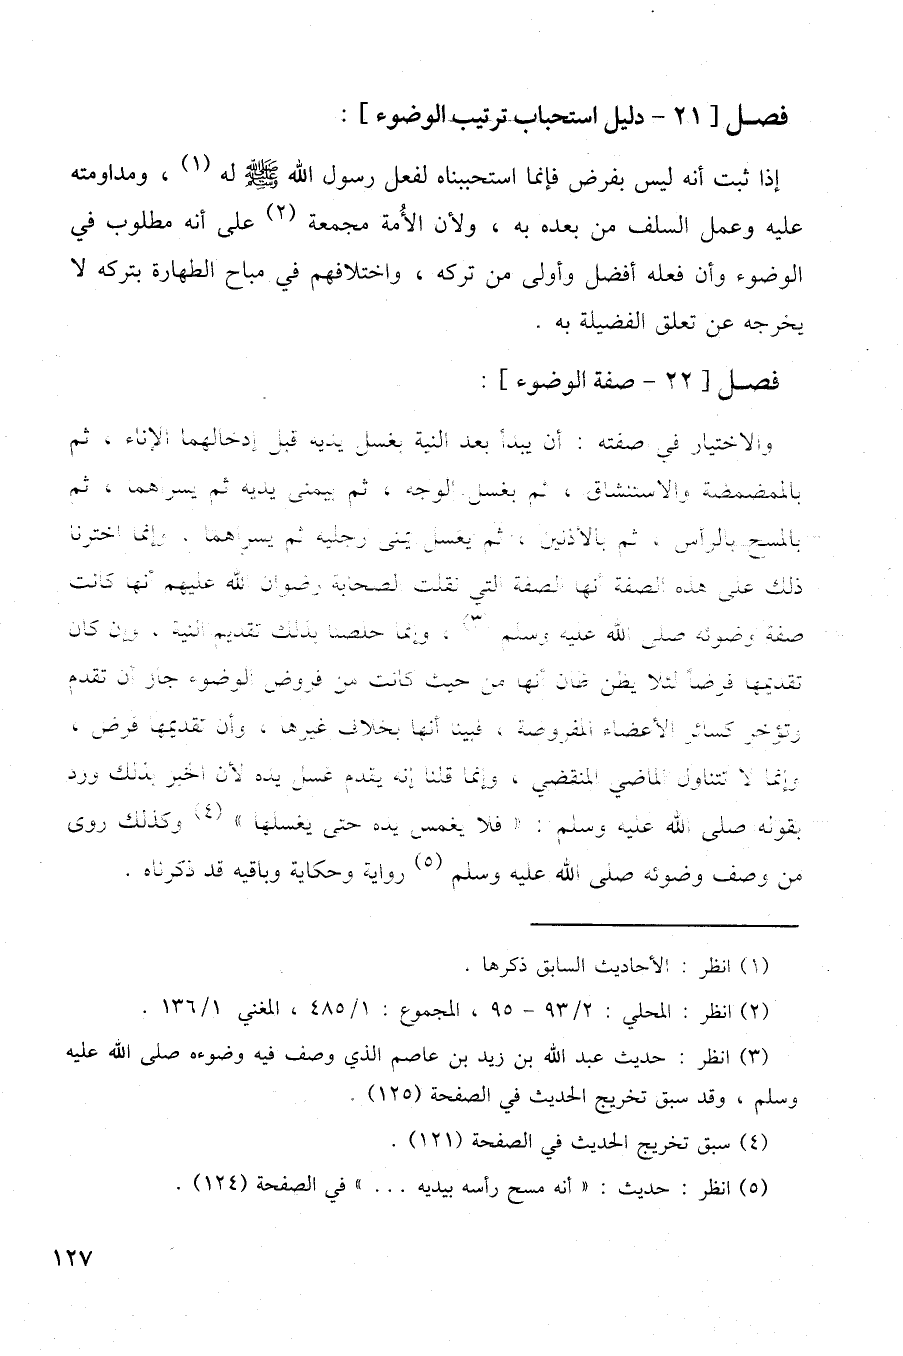 فصـل [ ٢١ - دليل استحباب ترتيب الوضوء ] :
إذا ثبت أنه ليس بفرض فإنما استحببناه لفعل رسول الله ﷺ له (١) ، ومداومته
عليه وعمل السلف من بعده به ، ولأن الأُمة مجمعة (٢) على أنه مطلوب في
الوضوء وأن فعله أفضل وأولى من تركه ، واختلافهم في مباح الطهارة بتركه لا
يخرجه عن تعلق الفضيلة به .
فصـل [ ٢٢ - صفة الوضوء ] :
والاختيار في صفته : أن يبدأ بعد النية بغسل يديه قبل إدخالهما الإناء ، ثم
بالمضمضة والاستنشاق ، ثم بغسل الوجه ، ثم بيمنى يديه ثم يسراهما ، ثم
بالمسح بالرأس ، ثم بالأذنين ، ثم يغسل يمنى رجليه ثم يسراهما . وإنما اخترنا
ذلك على هذه الصفة أنها الصفة التي نقلت الصحابة رضوان الله عليهم أنها كانت
صفة وضوئه صلى الله عليه وسلم (٣) ، وإنما خلصنا بذلك تقديم النية ، وإن كان
تقديمها فرضاً لئلا يظن ظان أنها من حيث كانت من فروض الوضوء جاز أن تقدم
وتؤخر كسائر الأعضاء المفروضة ، فبينا أنها بخلاف غيرها ، وأن تقديمها فرض ،
وإنما لا تتناول الماضي المنقضي ، وإنما قلنا إنه يقدم غسل يده لأن الخبر بذلك ورد
بقوله صلى الله عليه وسلم : « فلا يغمس يده حتى يغسلها » (٤) وكذلك روى
من وصف وضوئه صلى الله عليه وسلم (٥) رواية وحكاية وباقيه قد ذكرناه .
(١) انظر : الأحاديث السابق ذكرها .
(٢) انظر : المحلي : ٩٣/٢ - ٩٥ ، المجموع : ٤٨٥/١ ، المغني ١٣٦/١ .
(٣) انظر : حديث عبد الله بن زيد بن عاصم الذي وصف فيه وضوءه صلى الله عليه
وسلم ، وقد سبق تخريج الحديث في الصفحة (١٢٥) .
(٤) سبق تخريج الحديث في الصفحة (١٢١) .
(٥) انظر : حديث : « أنه مسح رأسه بيديه ... » في الصفحة (١٢٤) .
١٢٧